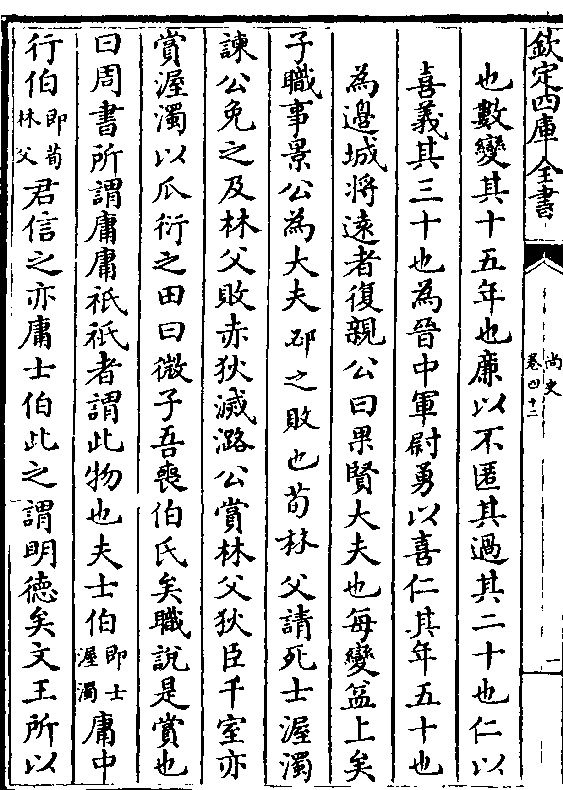 欽定四庫全書
尚史
卷四十二
一
也數變其十五年也廉以不匿其過其二十也仁以
喜義其三十也為晉中軍尉勇以喜仁其年五十也
為邊城將遠者復親公曰果賢大夫也每變益上矣
子職事景公為大夫邲之敗也荀林父請死士渥濁
諫公免之及林父敗赤狄滅潞公賞林父狄臣千室亦
賞渥濁以瓜衍之田曰微子吾喪伯氏矣職說是賞也
曰周書所謂庸庸祗祗者謂此物也夫士伯即士渥濁庸中
行伯即荀林父君信之亦庸士伯此之謂明德矣文王所以